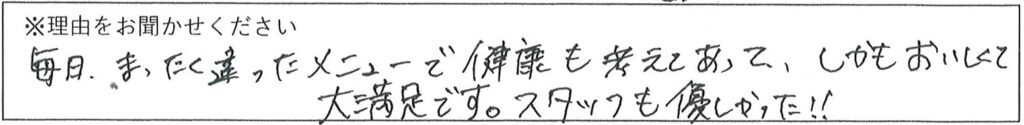 ※理由をお聞かせください
毎日、まったく違ったメニューで健康も考えてあって、しかもおいしくて
大満足です。スタッフも優しかった!!